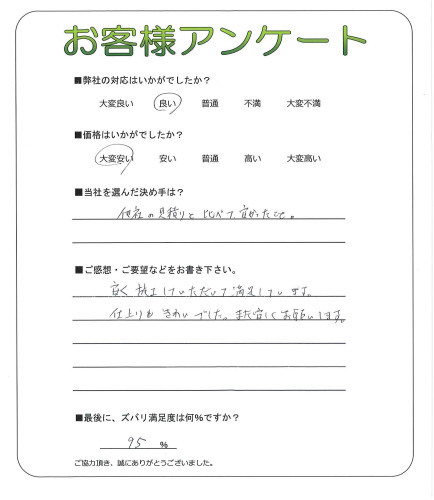 お客様アンケート
■弊社の対応はいかがでしたか?
大変良い 良い 普通 不満 大変不満
■価格はいかがでしたか?
大変安い 安い 普通 高い 大変高い
■当社を選んだ決め手は?
他社の見積りと比べて安かったこと。
■ご感想・ご要望などをお書き下さい。
安く施工していただいて満足しています。
仕上りもきれいでした。また宜しくお願いします。
■最後に、ズバリ満足度は何%ですか?
95 %
ご協力頂き、誠にありがとうございました。